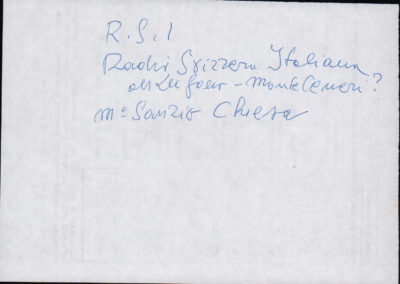 R.S.I
Radio Svizzera Italiana
- Monte Ceneri?
Mº Sanzio Chiesa